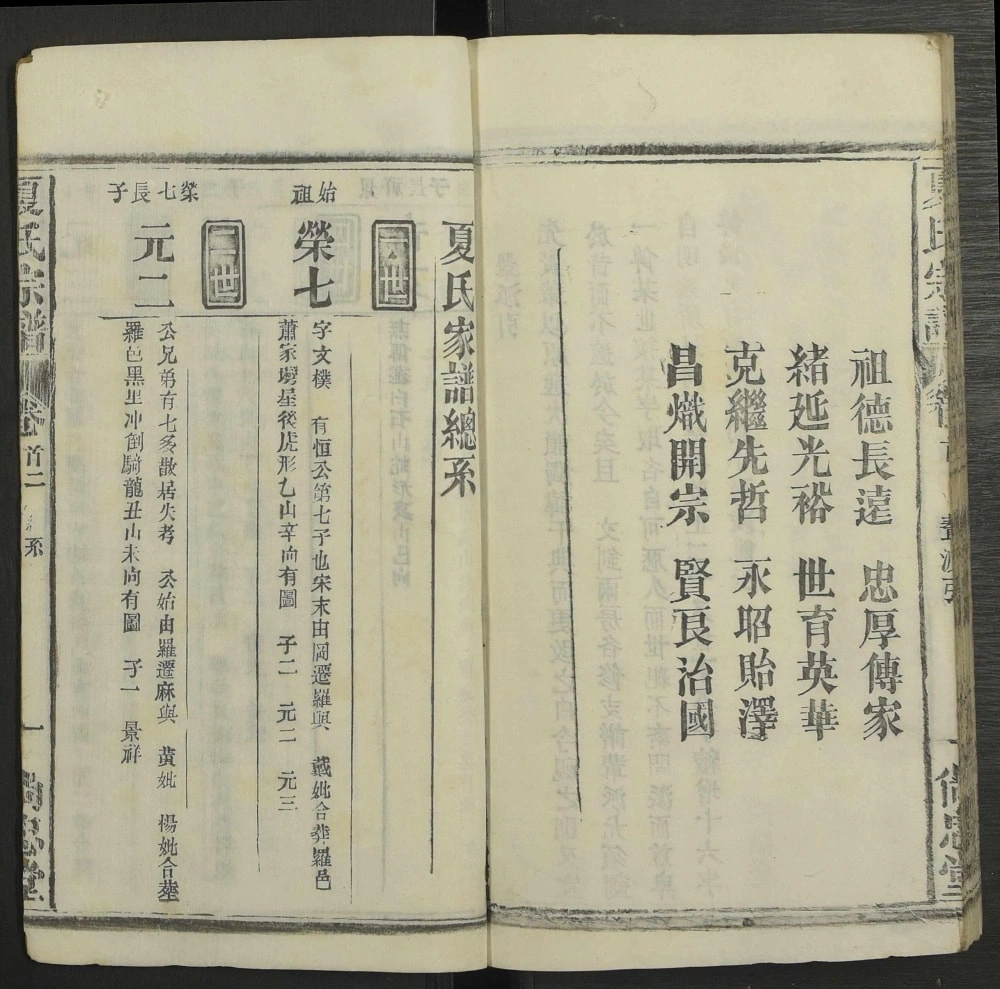 祖德長遠　忠厚傳家
緒延光裕　世育英華
克繼先哲　永昭貽澤
昌熾開宗　賢良治國
夏氏宗譜
卷首
輩派引
一
尚忠堂
夏氏家譜總系
一世
始祖
榮七
字文樸　有恒公第七子也宋末由岡遷羅與　戴妣合葬羅邑
蕭家塝星後虎形乙山辛向有圖　子二　元二　元三
二世
榮七長子
元二
公兄弟有七多散居失考　公始由羅遷麻與　黃妣　楊妣合塟
羅邑黑里冲倒騎龍丑山未向有圖　子一　景祥
夏氏宗譜
卷首二
系
一
尚忠堂